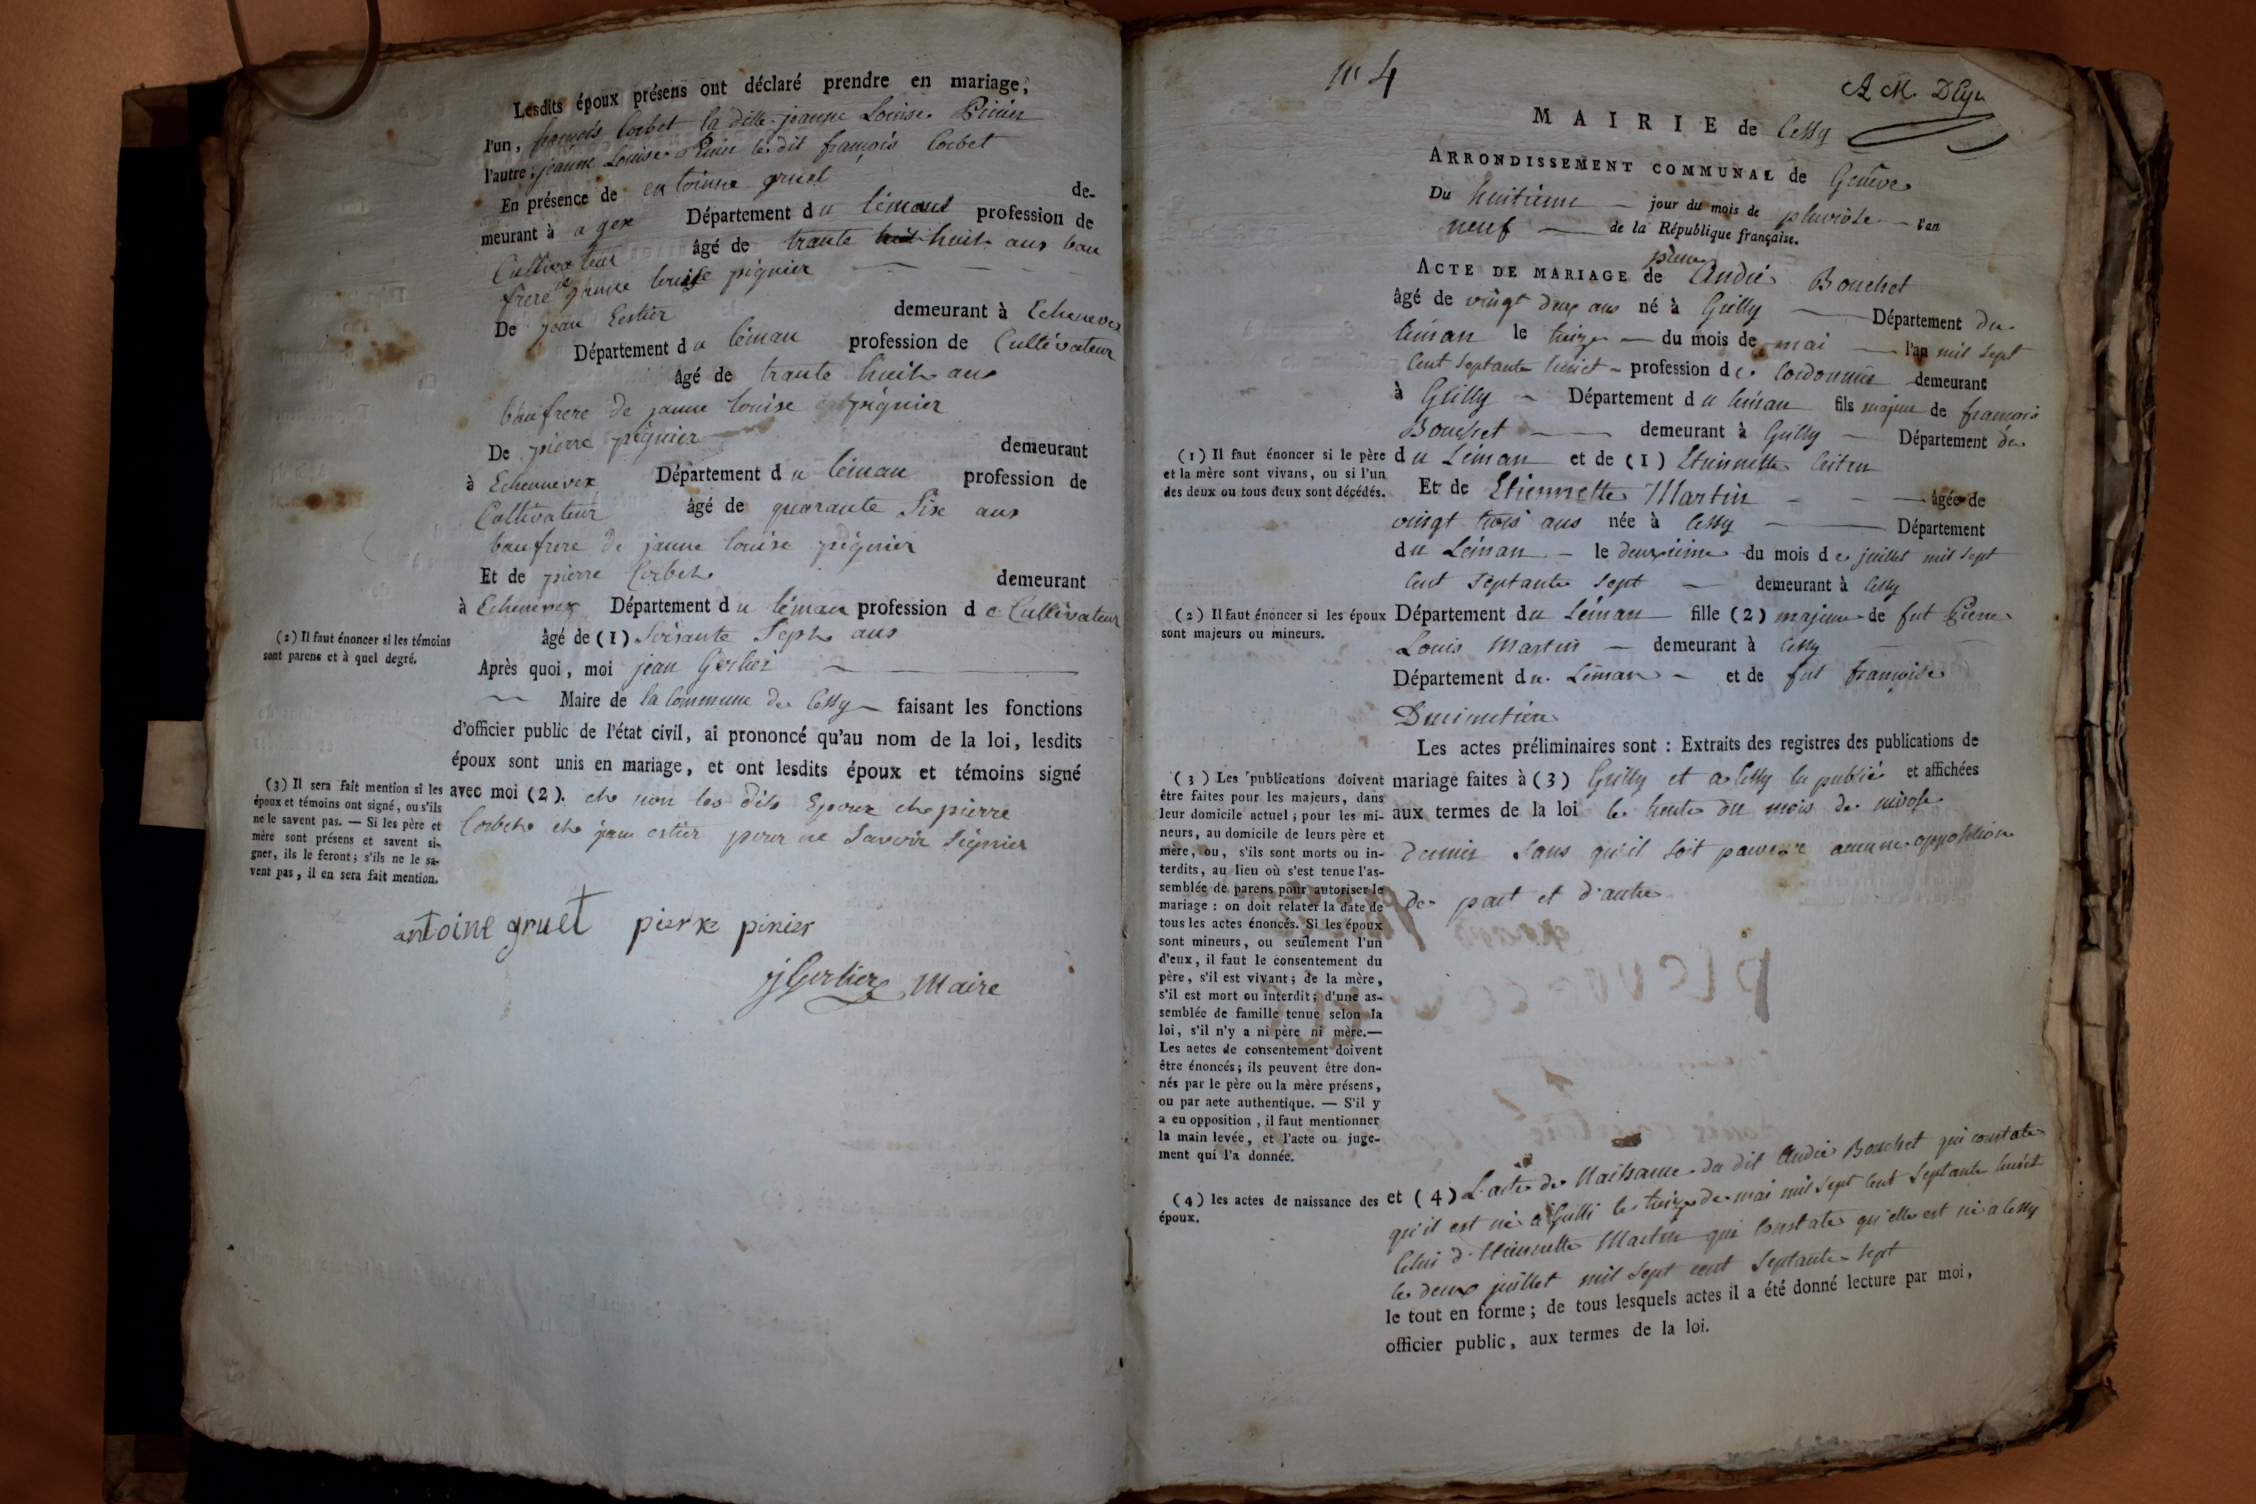 Lesdits époux présens ont déclaré prendre en mariage,
l'un, françois Corbet la ditte jeanne Louise Pinier
l'autre, jeanne Louise Pinier le dit françois Corbet
En présence de antoinne gruet de-
meurant à a gex Département du léman profession de
Cultivateur âgé de trante huit ans bau
frere de janne louise pignier
De jean Estier demeurant à Echenevex
Département du léman profession de Cultivateur
âgé de trante huit ans
baufrere de janne louise pignier
De pierre pignier demeurant
à Echennevex Département du léman profession de
Cultivateur âgé de quarante Six ans
baufrere de janne louise pignier
Et de pierre Corbet demeurant
à Echenevex Département du léman profession de Cultivateur
(1) Il faut énoncer si les témoins
sont parens et à quel degré.
âgé de (1) Soisante Sept ans
Après quoi, moi jean Gerlier
Maire de la Commune de Cessy faisant les fonctions
d'officier public de l'état civil, ai prononcé qu'au nom de la loi, lesdits
époux sont unis en mariage, et ont lesdits époux et témoins signé
(3) Il sera fait mention si les
époux et témoins ont signé, ou s'ils
ne le savent pas. — Si les père et
mère sont présens et savent si-
gner, ils le feront; s'ils ne le sa-
vent pas, il en sera fait mention.
avec moi (2). et non les dits Epoux et pierre
Corbet et jean estier pour ne Savoir Signier
antoine gruet pierre pinier
jGerlier Maire
n° 4
MAIRIE de Cessy
ARRONDISSEMENT COMMUNAL de Genève
Du huitieme jour du mois de pluviose l'an
neuf de la République française.
ACTE DE MARIAGE de André Bouchet
âgé de vingt deux ans né à Grilly Département du
léman le treize du mois de mai l'an mil sept
cent septante huict profession de Cordonnier demeurant
à Grilly Département du léman fils majeur de françois
Bouchet demeurant à Grilly Département du
(1) Il faut énoncer si le père
et la mère sont vivans, ou si l'un
des deux ou tous deux sont décédés.
du Léman et de (1) Etiennette
Et de Etiennette Martin âgée de
vingt trois ans née à Cessy Département
du Léman le deuxieme du mois de juillet mil sept
cent septante sept demeurant à Cessy
(2) Il faut énoncer si les époux
sont majeurs ou mineurs.
Département du Léman fille (2) majeure de fut Pierre
Louis Martin demeurant à Cessy
Département du Léman et de fut françoise
Les actes préliminaires sont : Extraits des registres des publications de
mariage faites à (3) Grilly et a Cessy lu publié et affichées
aux termes de la loi le trente du mois de nivose
dernier sans qu'il soit parvenu aucune opposition
de part et d'autre
(3) Les publications doivent
être faites pour les majeurs, dans
leur domicile actuel ; pour les mi-
neurs, au domicile de leurs père et
mère, ou, s'ils sont morts ou in-
terdits, au lieu où s'est tenue l'as-
semblée de parens pour autoriser le
mariage : on doit relater la date de
tous les actes énoncés. Si les époux
sont mineurs, ou seulement l'un
d'eux, il faut le consentement du
père, s'il est vivant ; de la mère,
s'il est mort ou interdit ; d'une as-
semblée de famille tenue selon la
loi, s'il n'y a ni père ni mère.—
Les actes de consentement doivent
être énoncés ; ils peuvent être don-
nés par le père ou la mère présens,
ou par acte authentique. — S'il y
a eu opposition, il faut mentionner
la main levée, et l'acte ou juge-
ment qui l'a donnée.
(4) les actes de naissance des
époux.
et (4) L'acte de Naissance du dit André Bouchet qui constate
qu'il est né a Grilli le treize de mai mil sept cent septante huict
Celui d'Etiennette Martin qui Constate qu'elle est né a Cessy
le deux juillet mil sept cent septante sept
le tout en forme ; de tous lesquels actes il a été donné lecture par moi,
officier public, aux termes de la loi.